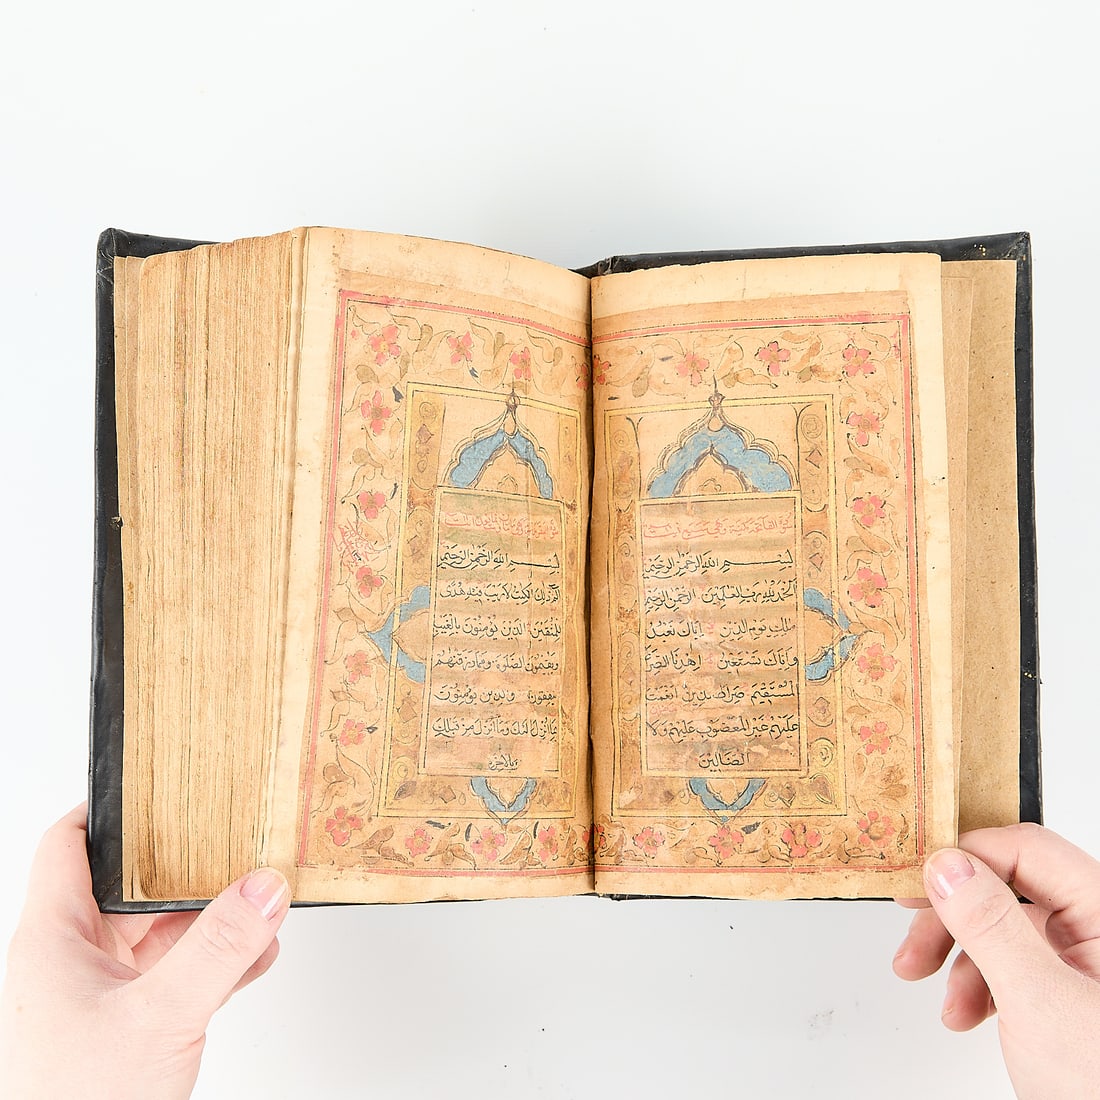 بسم الله الرحمن الرحيم
الحمد لله رب العلمين الرحمن الرحيم
ملك يوم الدين اياك نعبد
واياك نستعين اهدنا الصراط
المستقيم صراط الذين انعمت
عليهم غير المغضوب عليهم ولا
الضالين
بسم الله الرحمن الرحيم
الم ذلك الكتب لا ريب فيه هدى
للمتقين الذين يؤمنون بالغيب
ويقيمون الصلوة ومما رزقنهم
ينفقون والذين يؤمنون
بما انزل اليك وما انزل من قبلك
وبالاخرة